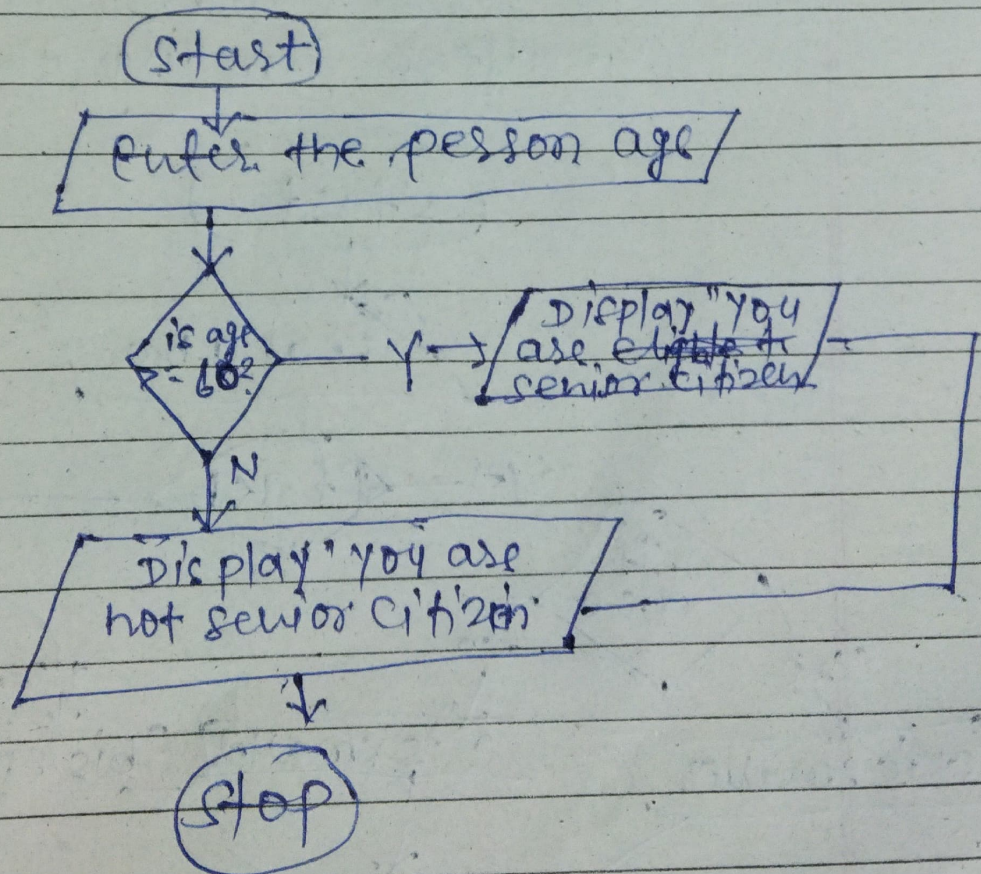 Start
Enter the person age
is age
>= 60?
Y
Display "You
are
senior citizen
N
Display "you are
not senior citizen
Stop